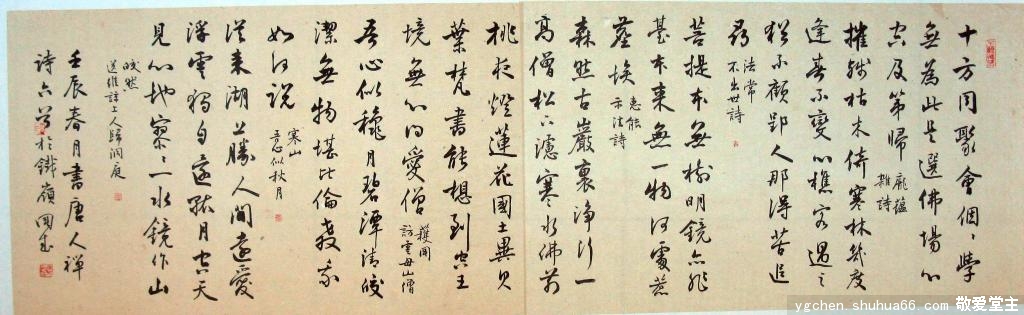 十方同聚會個々學
無為此是選佛場心
空及第歸
龐蘊
雜詩
摧殘枯木倚寒林幾度
逢春不變心樵客過之
猶不顧郢人那得苦追
尋
法常
不出世詩
菩提本無樹明鏡亦非
臺本來無一物何處惹
塵埃
惠能
示法詩
森然古巖裏净行一
高僧松下濾寒水佛前
挑夜燈蓮花國土異貝
葉梵書能想到空王
境無心問愛僧
護國
訪雲母山僧
吾心似穐月碧潭清皎
潔無物堪比倫教我
如何說
寒山
吾心似秋月
從來湖上勝人間遠愛
浮雲獨自還孤月空天
見心地寥々一水鏡作山
皎然
送維諒上人歸洞庭
壬辰春月書唐人禪
詩六首於鐵嶺
ygchen.shuhua66.com 敬爱堂主